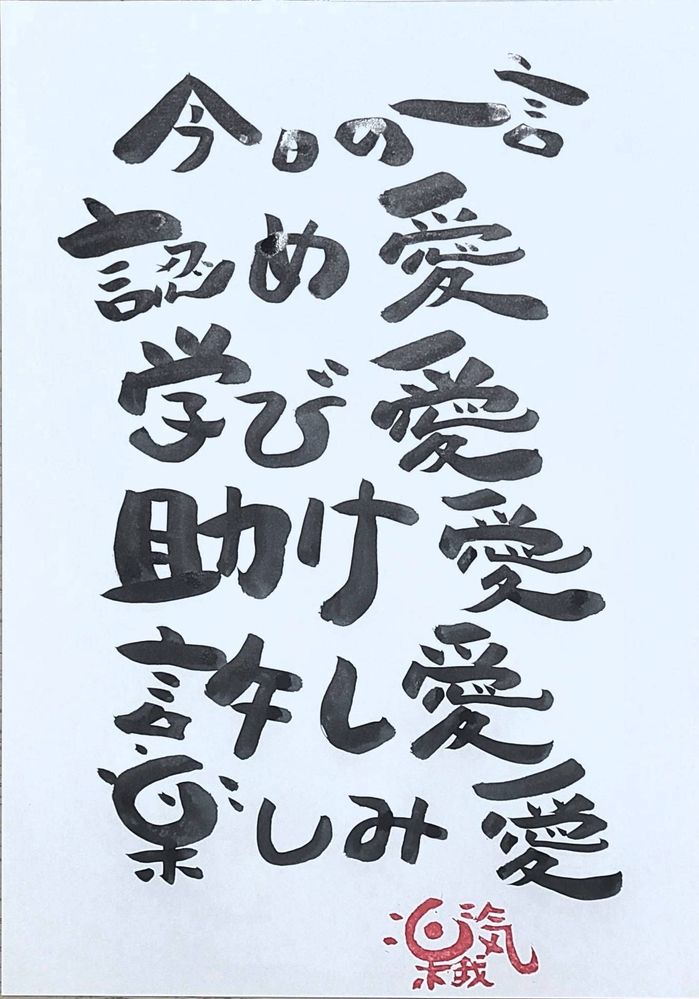 今日の一言
認め愛
学び愛
助け愛
許し愛
楽しみ愛